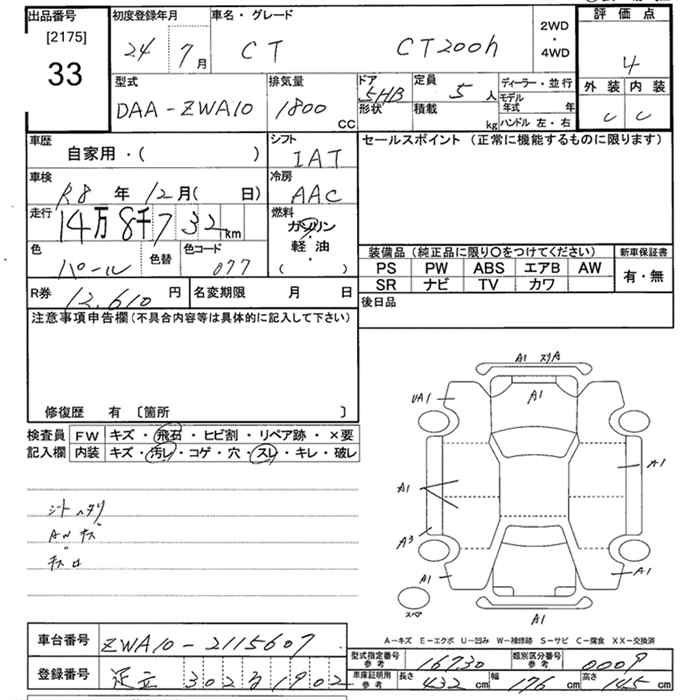 出品番号 初度登録年月 車名・グレード 2WD・4WD 評価点
[2175]
33
24 7月 CT CT200h 4
型式 排気量 ドア形状 定員 ディーラー・並行 外装 内装
DAA-ZWA10 1800 CC 5HB 5人 モデル年式 年 C C
積載 kg ハンドル 左・右
車歴 シフト セールスポイント (正常に機能するものに限ります)
自家用・( ) IAT
車検 冷房
R8年 12月( 日) AAC
走行 燃料
14万8千732km ガソリン
軽油
( )
色 色替 色コード
パール 077
装備品(純正品に限り〇をつけてください) 新車保証書
PS PW ABS エアB AW 有・無
SR ナビ TV カワ
R券 12,610円 名変期限 月 日
後日品
注意事項申告欄(不具合内容等は具体的に記入して下さい)
修復歴 有 〔箇所 〕
検査員 FW キズ・飛石・ヒビ割・リペア跡・×要
記入欄 内装 キズ・汚レ・コゲ・穴・スレ・キレ・破レ
シートヘタリ
キズ
A1 スリA
UA1 A1
A1 A1
A3
A1 A1
スペア A1
A-キズ E-エクボ U-凹み W-補修跡 S-サビ C-腐食 XX-交換済
車台番号 ZWA10-2115607
型式指定番号 参考 16730 類別区分番号 参考 0009
登録番号 足立 302 る 1902
車庫証明用 参考 長さ 432cm 幅 176cm 高さ 145cm